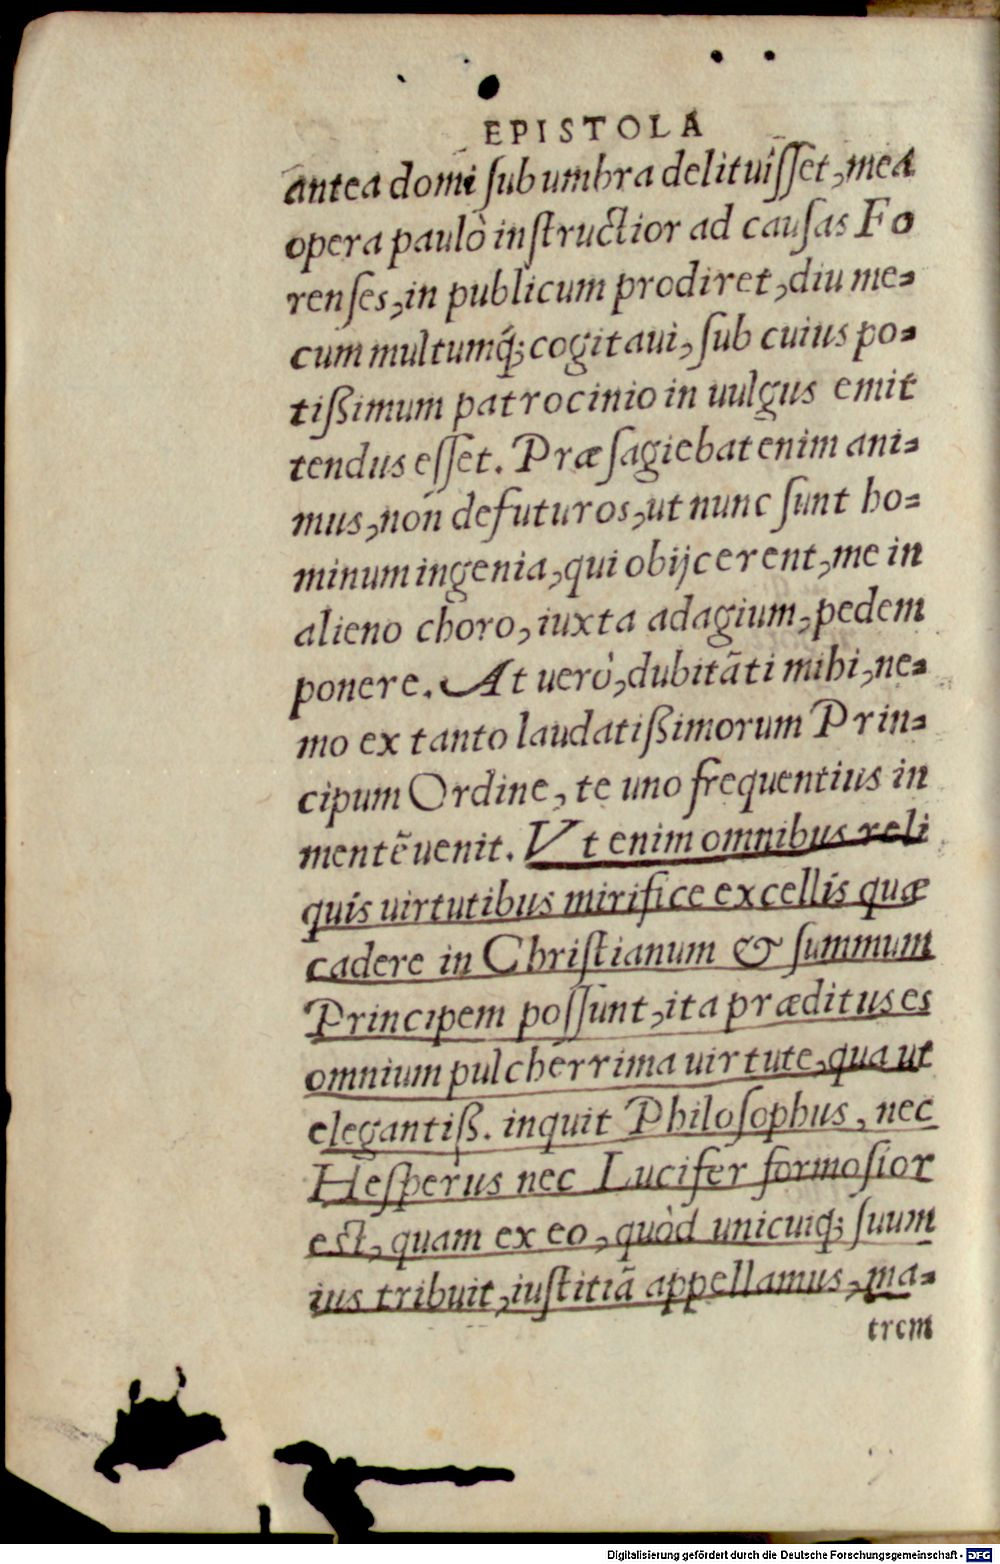 EPISTOLA
antea domi ſub umbra delituiſſet, mea
opera paulò inſtructior ad cauſas Fo
renſes, in publicum prodiret, diu me-
cum multumq́; cogitaui, ſub cuius po-
tißimum patrocinio in uulgus emit
tendus eſſet. Præſagiebat enim ani-
mus, non defuturos, ut nunc ſunt ho-
minum ingenia, qui obijcerent, me in
alieno choro, iuxta adagium, pedem
ponere. At uerò, dubitãti mihi, ne-
mo ex tanto laudatißimorum Prin-
cipum Ordine, te uno frequentius in
mentẽ uenit. Vt enim omnibus reli
quis uirtutibus mirifice excellis quæ
cadere in Chriſtianum & ſummum
Principem poſſunt, ita præditus es
omnium pulcherrima uirtute, qua ut
elegantiß. inquit Philoſophus, nec
Heſperus nec Lucifer formoſior
eſt, quam ex eo, quòd unicuiq; ſuum
ius tribuit, iuſtitiã appellamus, ma-
trem
Digitalisierung gefördert durch die Deutsche Forschungsgemeinschaft - DFG